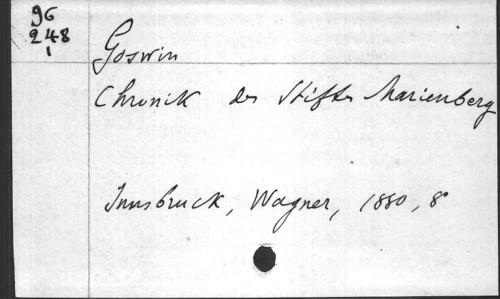 96
248
1
Goswin
Chronik des Stiftes Marienberg
Innsbruck, Wagner, 1880, 8°